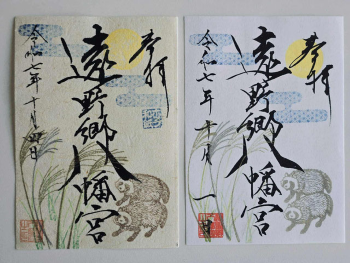 奉拝
遠野郷八幡宮
令和七年十月四日
奉拝
遠野郷八幡宮
令和七年十月一日